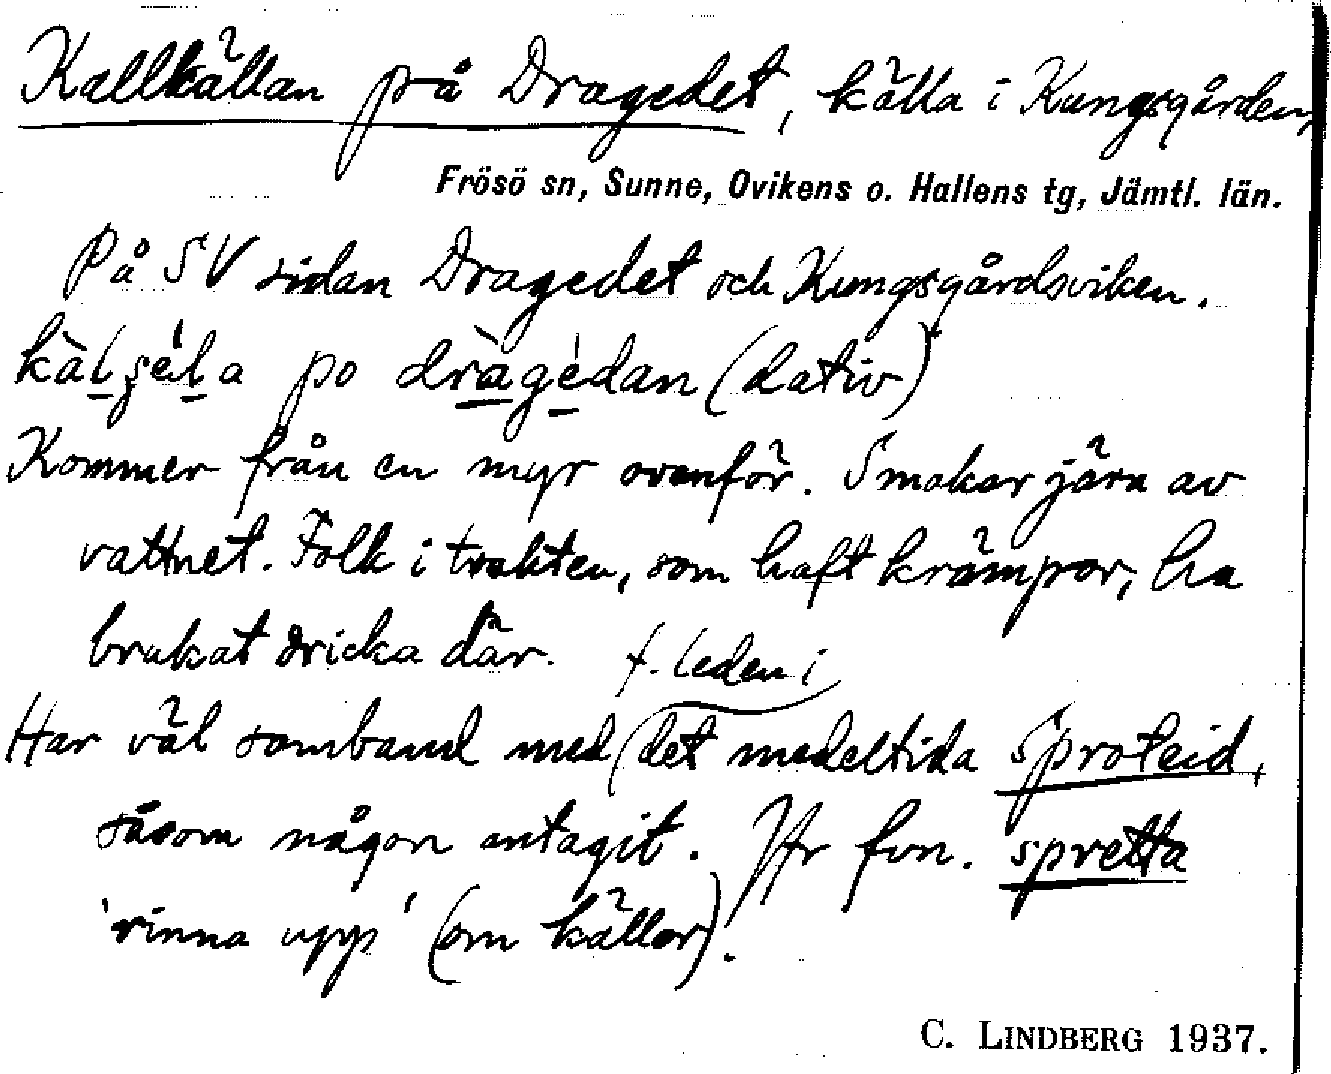 Kallkällan på Dragedet, källa i Kungsgården,
Frösö sn, Sunne, Ovikens o. Hallens tg, Jämtl. län.
På SV sidan Dragedet och Kungsgårdsviken.
po dràgédan (dativ)
Kommer från en myr ovanför. Smakar järn av
vattnet. Folk i trakten, som haft krämpor, ha
brukat dricka där.
f. leden i
Har väl samband med det medeltida Sproteid,
såsom någon antagit. Jfr fvn. spretta
'rinna upp' (om källor).
C. LINDBERG 1937.